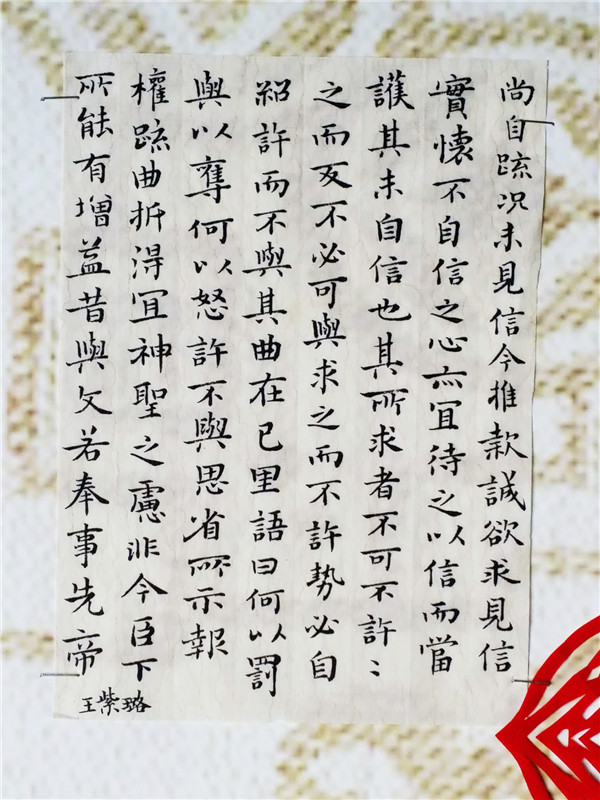 尚自疏况未見信今推款誠欲求見信
實懷不自信之心亦冝待之以信而當
護其未自信也其所求者不可不許〻
之而反不必可與求之而不許勢必自
絕許而不與其曲在己里語曰何以罰
與以奪何以怒許不與思省所示報
權疏曲折得冝神聖之慮非今臣下
所能有增益昔與文若奉事先帝
王紫璐